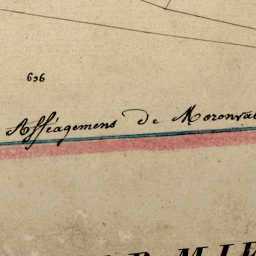 636
Afféagemens de Moronval
MIE